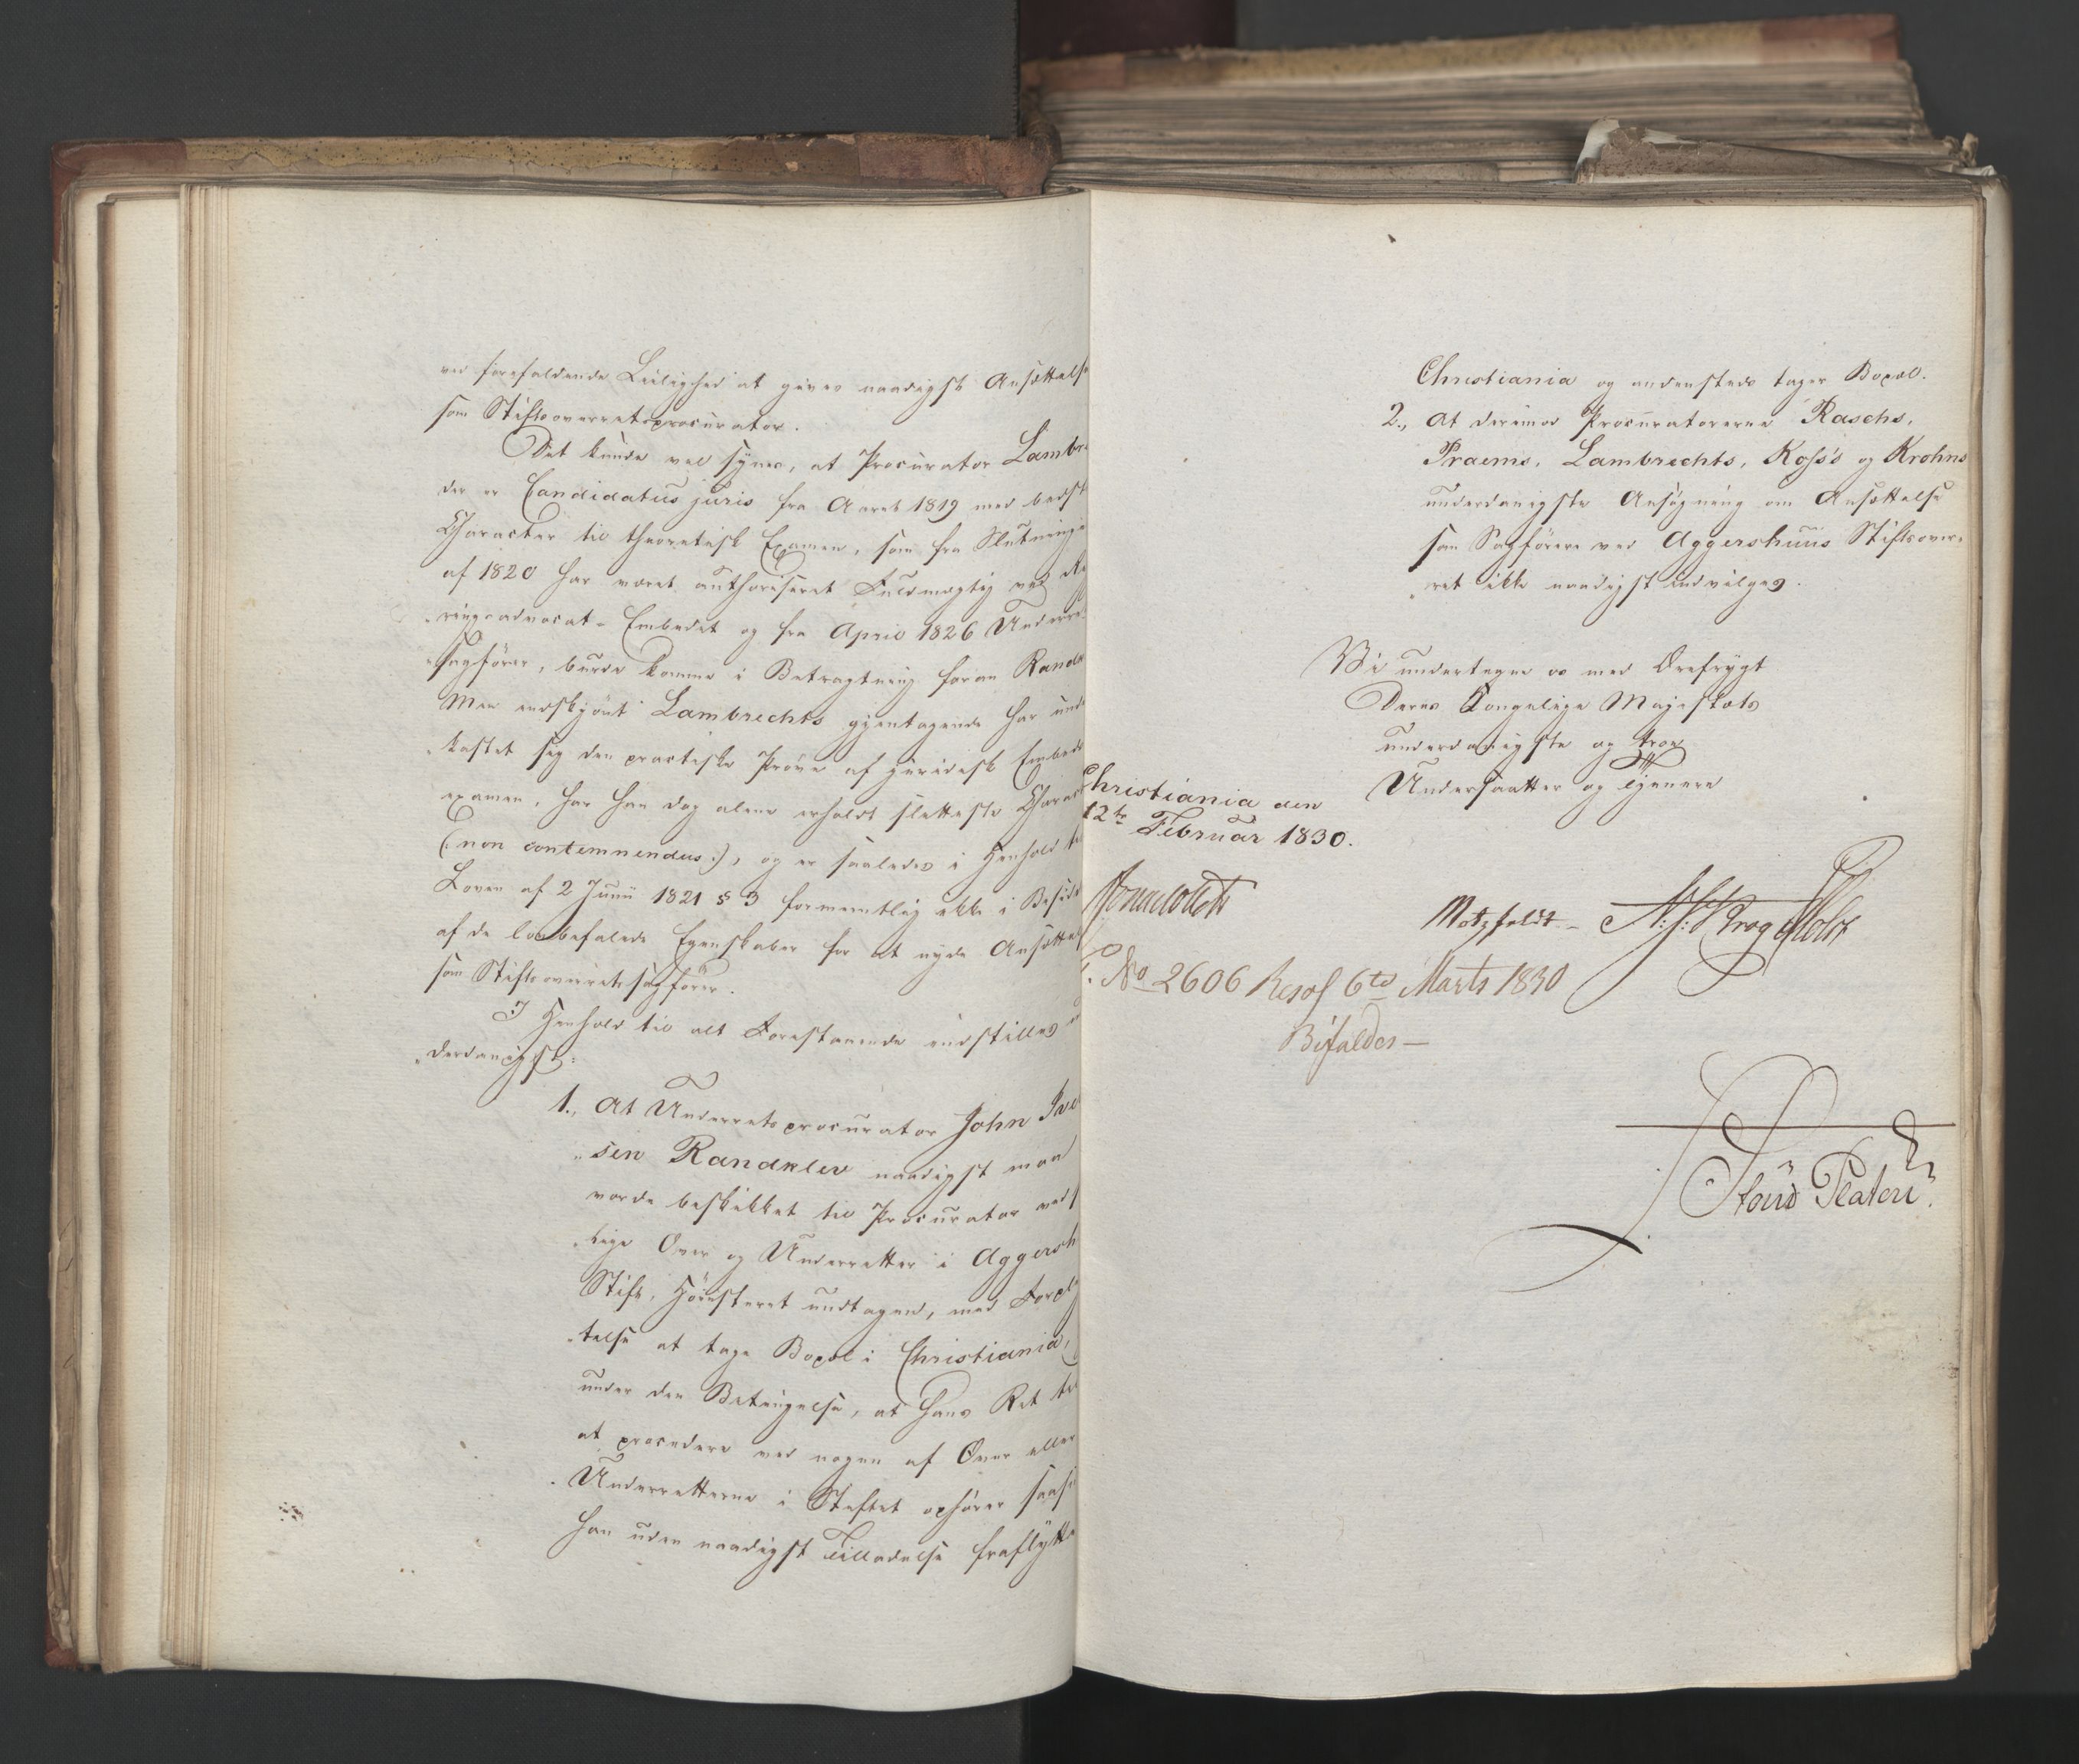 ved forefaldende Leilighed at gives naadigst Ansættelse
som Stiftsoverretsprocurator.
Det kunde vel synes, at Procurator Lambr
der er Candidatus juris fra Aaret 1819 med bedste
Character til theoretisk Examen, som fra Slutninge
af 1820 har været authoriseret Fuldmægtig ved Re
„ringsadvocat-Embedet og fra April 1826 Underre
„sagfører, burde komme i Betragtning foran Randk
Men endskjönt Lambrechts gjentagende har und
„kastet sig den practiske Prøve af juridisk Embeds
examen, har han dog alene erholdt sletteste Charac
(: non contemnendus :), og er saaledes i Henhold til
Loven af 2 Junii 1821 § 3 formeentlig ikke i Besidd
af de lovbefalede Egenskaber for at nyde Ansættel
som Stiftsoverretssagfører.
I Henhold til alt Forestaaende indstilles un
„derdanigst:
1., At Underretsprocurator John Ive
„sen Randklev naadigst maa
vorde beskikket til Procurator ved
„lige Over og Underretter i Aggersh
Stift, Höiesteret undtagen, med Forpl
„telse at tage Bopæl i Christiania,
under den Betingelse, at hans Ret til
at procedere ved nogen af Over eller
Underretterne i Stiftet ophører saas
han uden naadigst Tilladelse fraflytte
Christiania og andensteds tager Bopæl.
2., At derimod Procuratorerne Raschs,
Praems, Lambrechts, Koss's og Krohns
underdanigste Ansøgning om Ansættelse
som Sagførere ved Aggershuus Stiftsover„
„ret ikke naadigst indvilges.
Vi undertegne os med Ærefrygt
Deres Kongelige Majestæts
underdanigste og troe
Undersaatter og Tjenere
Christiania den
12te Februar 1830.
Motzfeldt
Krog Holst
No 2606 Resol 6te Marts 1830
Bifaldes —
Platen